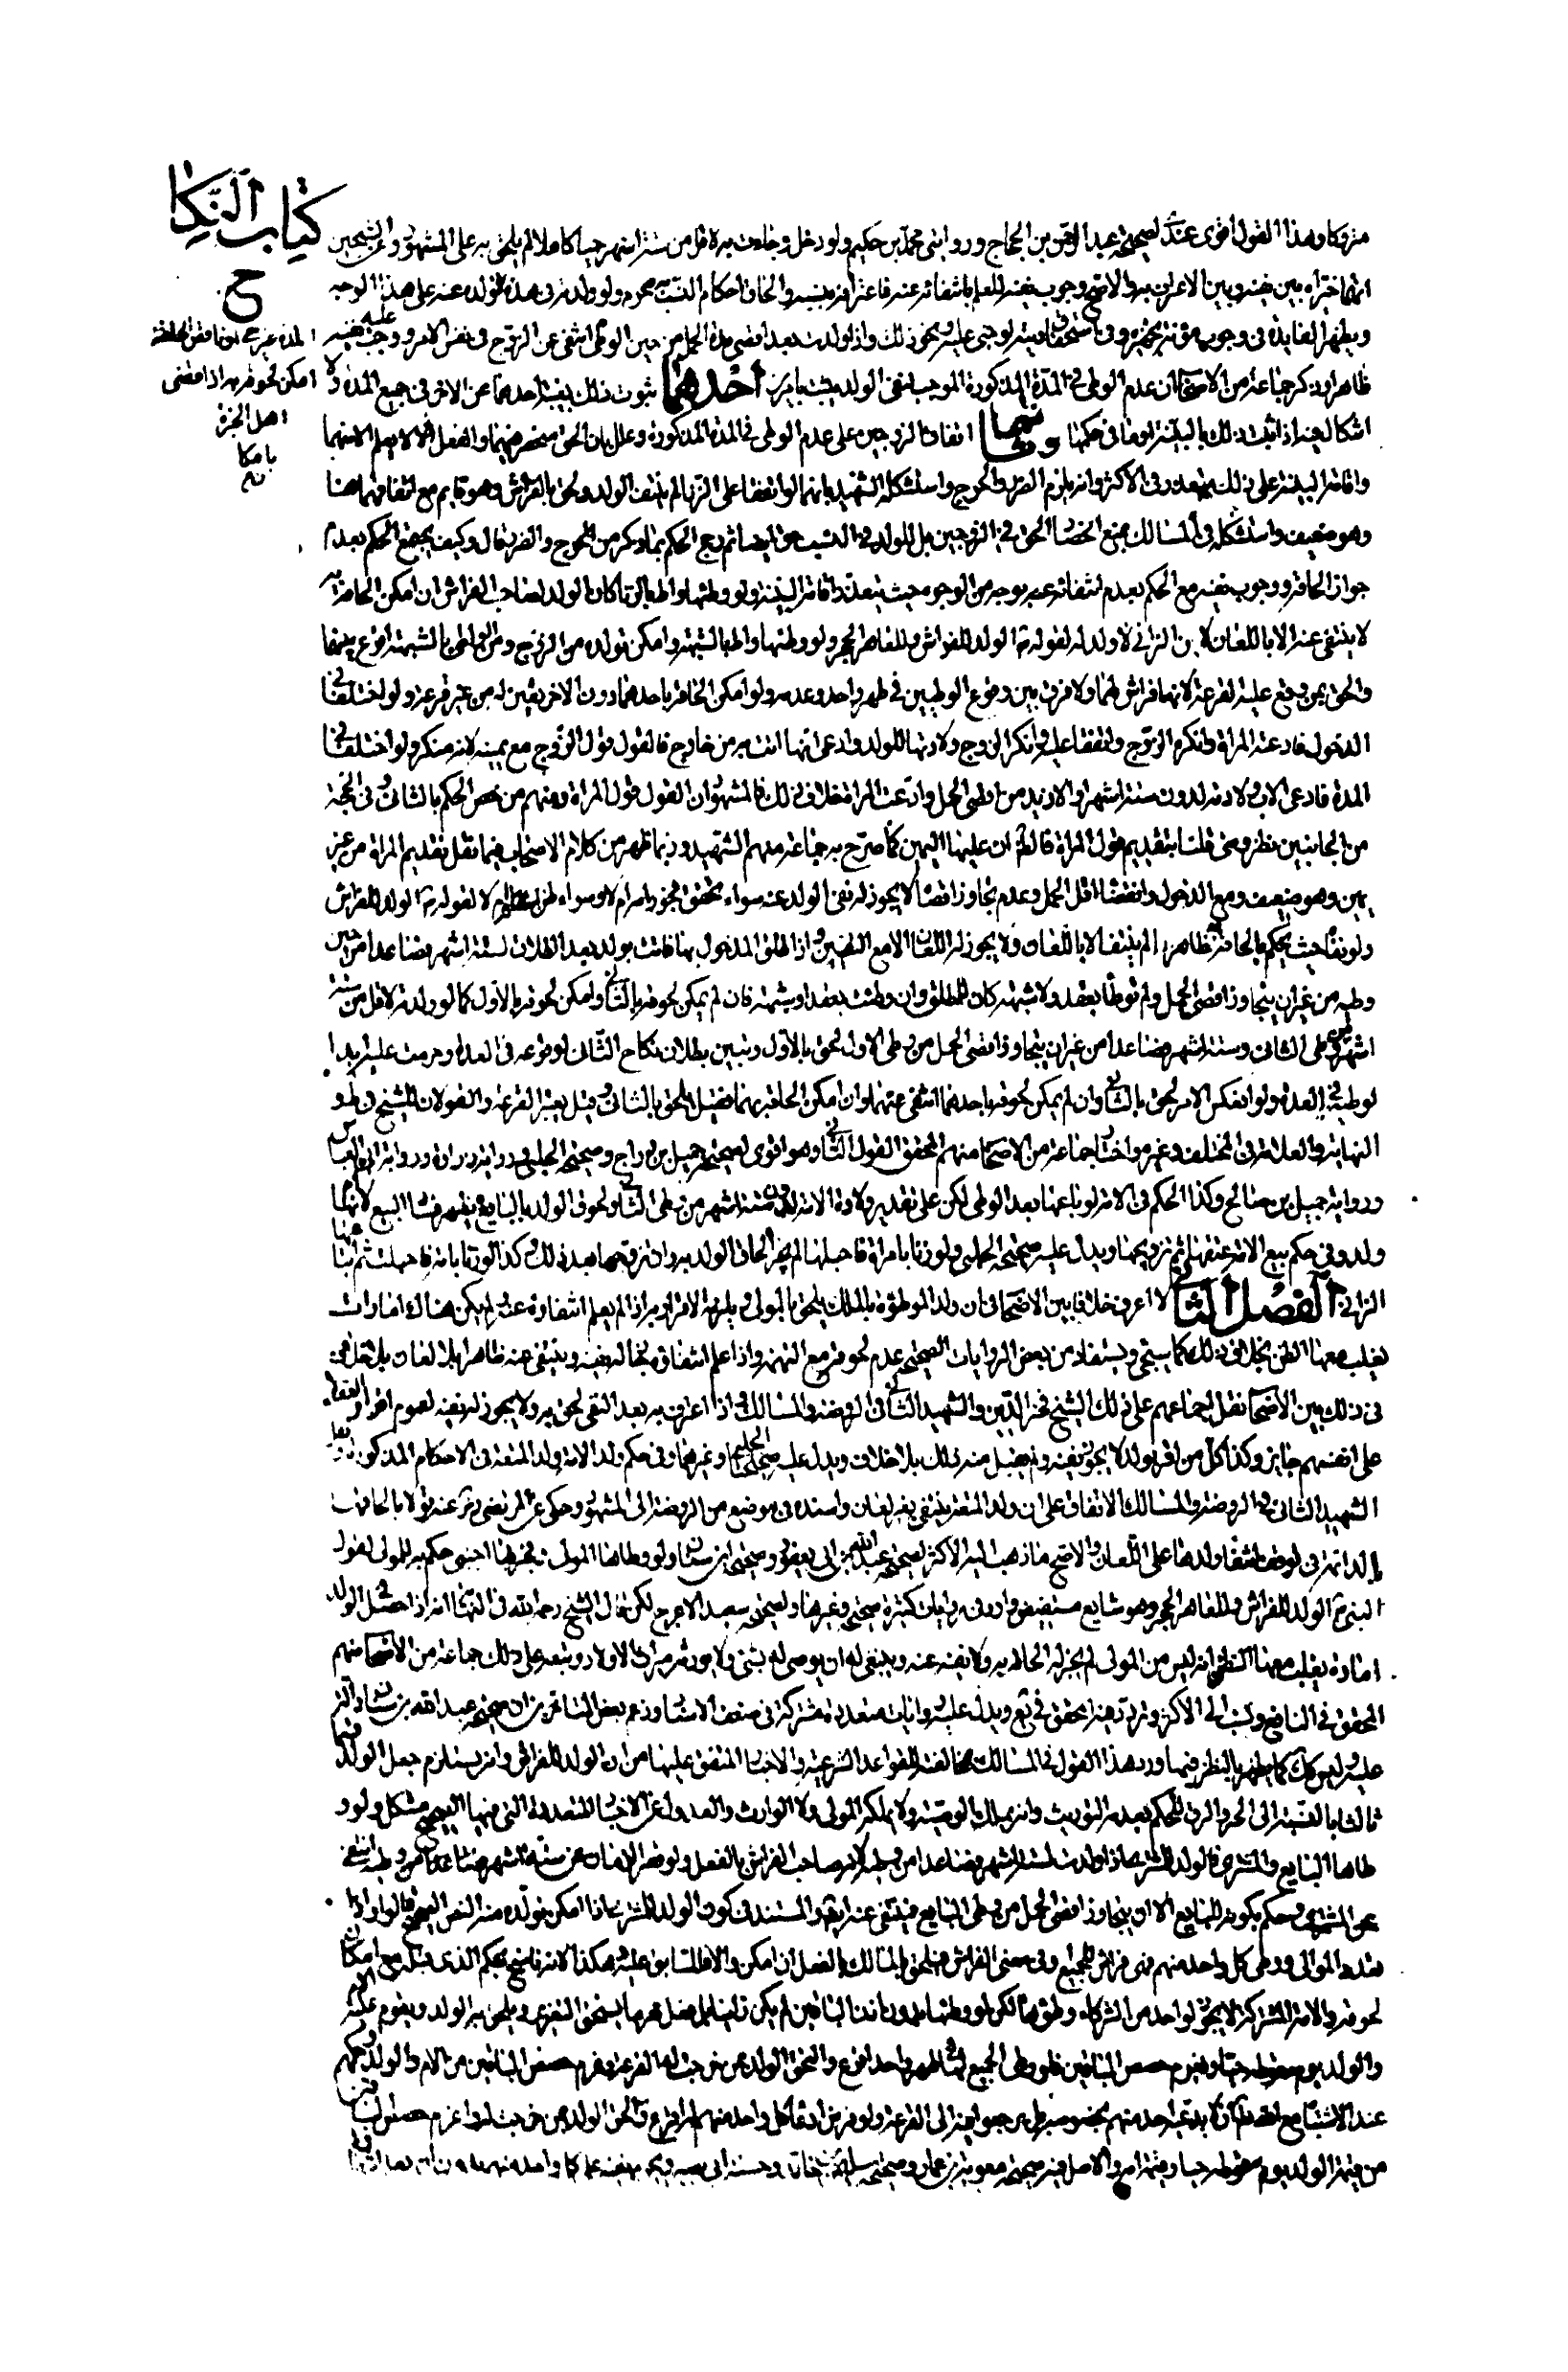 كتاب النكاح
متروكا وهذا القول اقوى عندى لصحيحة عبد الرحمن بن الحجاج وروايتى محمد بن حكيم ولو دخل وجاءت به لاقل من ستة اشهر حيا كاملا لم يلحق به على المشهور وعن الشيخين
انهما خيراه بين نفيه وبين الاعتراف به والاصح وجوب نفيه للعلم بانتفائه عنه فاعترافه بنسبه والحاق احكام النسب به محرم ولو ولدته فى هذه تولده عنه على هذا الوجه
ويظهر الفايدة فى وجوب مؤنة تجهيزه وفى استحقاق ديته لو جنى عليه ونحو ذلك واذا ولدت بعد اقصى مدة الحمل من حين الوطى انتفى عن الزوج فى نفس الامر ووجب عليه نفيه
ظاهرا وذكر جماعة من الاصحاب ان عدم الوطى فى المدة المذكورة الموجب لنفى الولد يثبت بامرين احدهما ثبوت ذلك بغيبة احدهما عن الاخر فى جميع المدة ولا
اشكال فيه اذا ثبت ذلك بالبينة او ما فى حكمها وثانيهما اتفاق الزوجين على عدم الوطى فى المدة المذكورة وعلل بان الحق منحصر فيهما والفعل لا يعلم الا منهما
واقامة البينة على ذلك متعذر فى الاكثر وانه يلزم الضرر والحرج واستشكله الشهيد بانهما لو اتفقا على الزنا لم ينتف الولد ولحق بالفراش وهو قايم مع اتفاقهما هنا
وهو ضعيف واستشكله فى المسالك بمنع انحصار الحق فى الزوجين بل للولد فى النسب حق ايضا ثم رجح الحكم بما ذكر من الحرج والضرر قال وكيف يجتمع الحكم بعدم
جواز الحاقه ووجوب نفيه مع الحكم بعدم انتفائه عنه بوجه من الوجوه حيث يتعذر اقامة البينة ولو وطئها واطئ بالزنا كان الولد لصاحب الفراش ان امكن الحاقه به
لا ينتفى عنه الا باللعان لان الزانى لا ولد له لقوله ص الولد للفراش وللعاهر الحجر ولو وطئها واطئ بالشبهة وامكن تولده من الزوج ومن الواطى بالشبهة اقرع بينهما
والحق بمن وقع عليه القرعة لانها فراش لهما ولا فرق بين وقوع الوطيين فى طهر واحد وعدمه ولو امكن الحاقه باحدهما دون الاخر تعين له من غير قرعة ولو اختلفا فى
الدخول فادعته المراة وانكره الزوج واتفقا عليه وانكر الزوج ولادتها للولد وادعى انها اتت به من خارج فالقول قول الزوج مع يمينه لانه منكر ولو اختلفا فى
المدة فادعى الاب ولادته لدون ستة اشهر او الازيد من اقصى الحمل وادعت المراة خلاف ذلك فالمشهور ان القول قول المراة ومنهم من خص الحكم بالثانى وفى الحجة
من الجانبين نظر ومتى قلنا بتقديم قول المراة فالظ ان عليها اليمين كما صرح به جماعة منهم الشهيد وربما ظهر من كلام الاصحاب فيما نقل تقديم المراة من غير
يمين وهو ضعيف ومع الدخول وانقضاء اقل الحمل وعدم تجاوز اقصاه لا يجوز له نفى الولد عنه سواء تحقق فجور امه ام لا وسواء ظن ام لا لقوله ص الولد للفراش
ولو نفاه حيث يحكم بالحاقه به ظاهرا لم ينتف الا باللعان ولا يجوز له اللعان الا مع اليقين واذا طلق المدخول بها فاتت بولد بعد الطلاق لستة اشهر فصاعدا من حين
وطيه من غير ان يتجاوز اقصى الحمل ولم توطأ بعقد ولا شبهة كان للمطلق وان وطئت بعقد او شبهة فان لم يمكن لحوقه بالثانى وامكن لحوقه بالاول كما لو ولدته لاقل من ستة
اشهر من وطى الثانى وستة اشهر فصاعدا من غير ان يتجاوز اقصى الحمل من وطى الاول لحق بالاول وتبين بطلان نكاح الثانى لوقوعه فى العدة وحرمت عليه ابدا
لوطيه فى العدة ولو انعكس الامر لحق بالثانى وان لم يمكن لحوقه باحدهما انتفى عنهما وان امكن الحاقه بهما فقيل يلحق بالثانى وقيل يعتبر القرعة والقولان للشيخ فى ط و
النهاية والعلامة فى المختلف وغيره واختار جماعة من الاصحاب منهم المحقق القول الثانى وهو اقوى لصحيحة جميل بن دراج وصحيحة الحلبى ورواية زرارة ورواية ابى العباس
ورواية جميل بن صالح وكذا الحكم فى الامة لو باعها بعد الوطى لكن على تقدير ولادة الامة لدون ستة اشهر من وطى الثانى ولحوق الولد بالبايع يظهر فساد البيع لانها ام
ولد وفى حكم بيع الامة عتقها ثم تزويجها ويدل عليه صحيحة الحلبى ولو زنا بامراة فاحبلها لم يجز الحاق الولد به وان تزوجها بعد ذلك وكذا لو زنا بامة فاحبلها ثم ابتاعها
الزانى الفصل الثانى لا اعرف خلافا بين الاصحاب فى ان ولد الموطوءة بالملك يلحق بالمولى ويلزمه الاقرار به اذا لم يعلم انتفاؤه عنه ولم يكن هناك امارات
يغلب معها الظن بخلاف ذلك كما سيجئ ويستفاد من بعض الروايات الصحيحة عدم لحوقه مع التهمة واذا علم انتفاؤه فالحاله نفيه وينتفى عنه ظاهرا بلا لعان بلا خلاف
فى ذلك بين الاصحاب نقل اجماعهم على ذلك الشيخ فخر الدين والشهيد الثانى فى الروضة والمسالك واذا اعترف به بعد النفى لحق به ولا يجوز له نفيه لعموم اقرار العقلاء
على انفسهم جايز وكذا كل من اقر بولد لا يجوز نفيه ولم يقبل منه ذلك بلا خلاف ويدل عليه صحيحة الحلبى وغيرها وفى حكم ولد الامة ولد المتعة فى الاحكام المذكورة
الشهيد الثانى فى الروضة والمسالك الاتفاق على ان ولد المتعة ينتفى بغير لعان واسنده فى موضع من الروضة الى المشهور وحكى عن المرتضى ره عنه قولا بالحاقها
بالدائمة فى توقف انتفاء ولدها على اللعان والاصح ما ذهب اليه الاكثر لصحيحة عبد الله بن ابى يعفور وصحيحة ابن سنان ولو وطاها المولى وفجر بها اجنبى حكم به للمولى لقول
النبى ص الولد للفراش وللعاهر الحجر وهو شايع مستفيض وارد فى روايات كثيرة صحيحة وغيرها ولصحيحة سعيد الاعرج لكن قال الشيخ رحمه الله فى النهاية انه اذا حصل فى الولد
امارة يغلب معها الظن انه ليس من المولى لم يجز له الحاقه به ولا نفيه عنه وينبغى له ان يوصى له بشئ ولا يورثه ميراث الاولاد وتبعه على ذلك جماعة من الاصحاب منهم
المحقق فى النافع ونسب الى الاكثر وتردد فيه المحقق فى يع ويدل عليه روايات متعددة مشتركة فى ضعف الاسناد وزعم بعض المتاخرين ان صحيحة عبد الله بن سنان دالة
عليه وليس كك كما يظهر بالنظر فيها ورد هذا القول فى المسالك بمخالفته للقواعد الشرعية والاخبار المتفق عليها من ان الولد للفراش وانه يستلزم جعل الولد قسما
ثالثا بالنسبة الى الحر والرق للحكم بعدم التوريث وانه يملك بالوصية ولا يملكه المولى ولا الوارث والعدول عن الاخبار المتعددة التى فيها الصحيح مشكل ولو و
طاها البايع والمشترى فالولد للمشترى اذا ولدت لستة اشهر فصاعدا من وطيه لانه صاحب الفراش بالفعل ولو قصر الزمان عن ستة اشهر فصاعدا من وطيه انتفى
عن المشترى وحكم بكونه للبايع الا ان يتجاوز اقصى الحمل من وطى البايع فينتفى عنه ايضا والمستند فى كون الولد للمشترى اذا امكن تولده منه النص الصحيح قالوا واذا
تعدد الموالى ووطى كل واحد منهم فهى فراش للجميع وفى معنى الفراش فيلحق بالمالك بالفعل ان امكن والا فالسابق عليه وهكذا لانه ناسخ لحكم الذى قبله مع امكان
لحوقه والامة المشتركة لا يجوز لواحد من الشركاء وطؤها لكن لو وطئها بدون اذن الباقين لم يكن زانيا بل فعل محرما يستحق التعزير ويلحق به الولد ويقوم عليه الام
والولد يوم سقوطه حيا ويغرم حصص الباقين فلو وطى الجميع لها فى طهر واحد اقرع والحق الولد بمن خرجت له القرعة ويغرم حصص الباقين من الام والولد وحكمهم
عند الاشتباه مع
من قيمة الولد يوم سقوطه حيا وقيمة امه والاصل فيه صحيحة معوية بن عمار وصحيحة سليمان بن خالد وحسنة ابى بصير
المدة
امكن لحوقه به اذا مضى